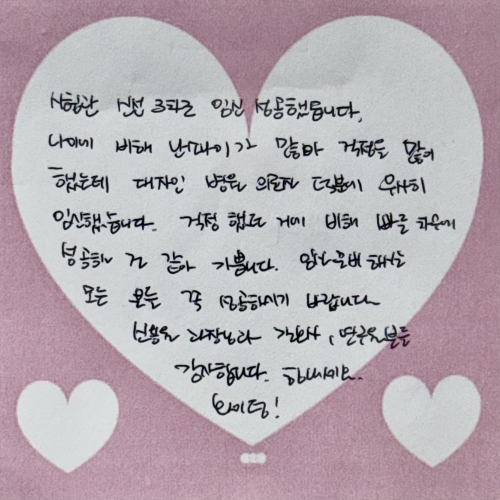 시험관 신선 3차로 임신 성공했습니다.
나이에 비해 난저이가 많아 걱정을 많이
했는데 대자인 병원 의료진 덕분에 무사히
임신했습니다. 걱정 했던 거에 비해 빠른 차수에
성공하 건 같아 기쁩니다. 임신 준비 하시는
모든 분들 꼭 성공하시기 바랍니다
과장님과 간호사, 연구원분들
감사합니다. 힘내세요.
화이팅!